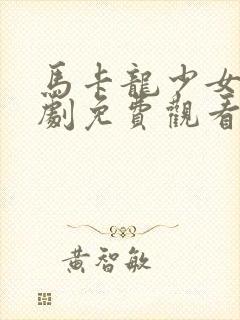 馬卡龍少女
劇免費觀看
黃智敏